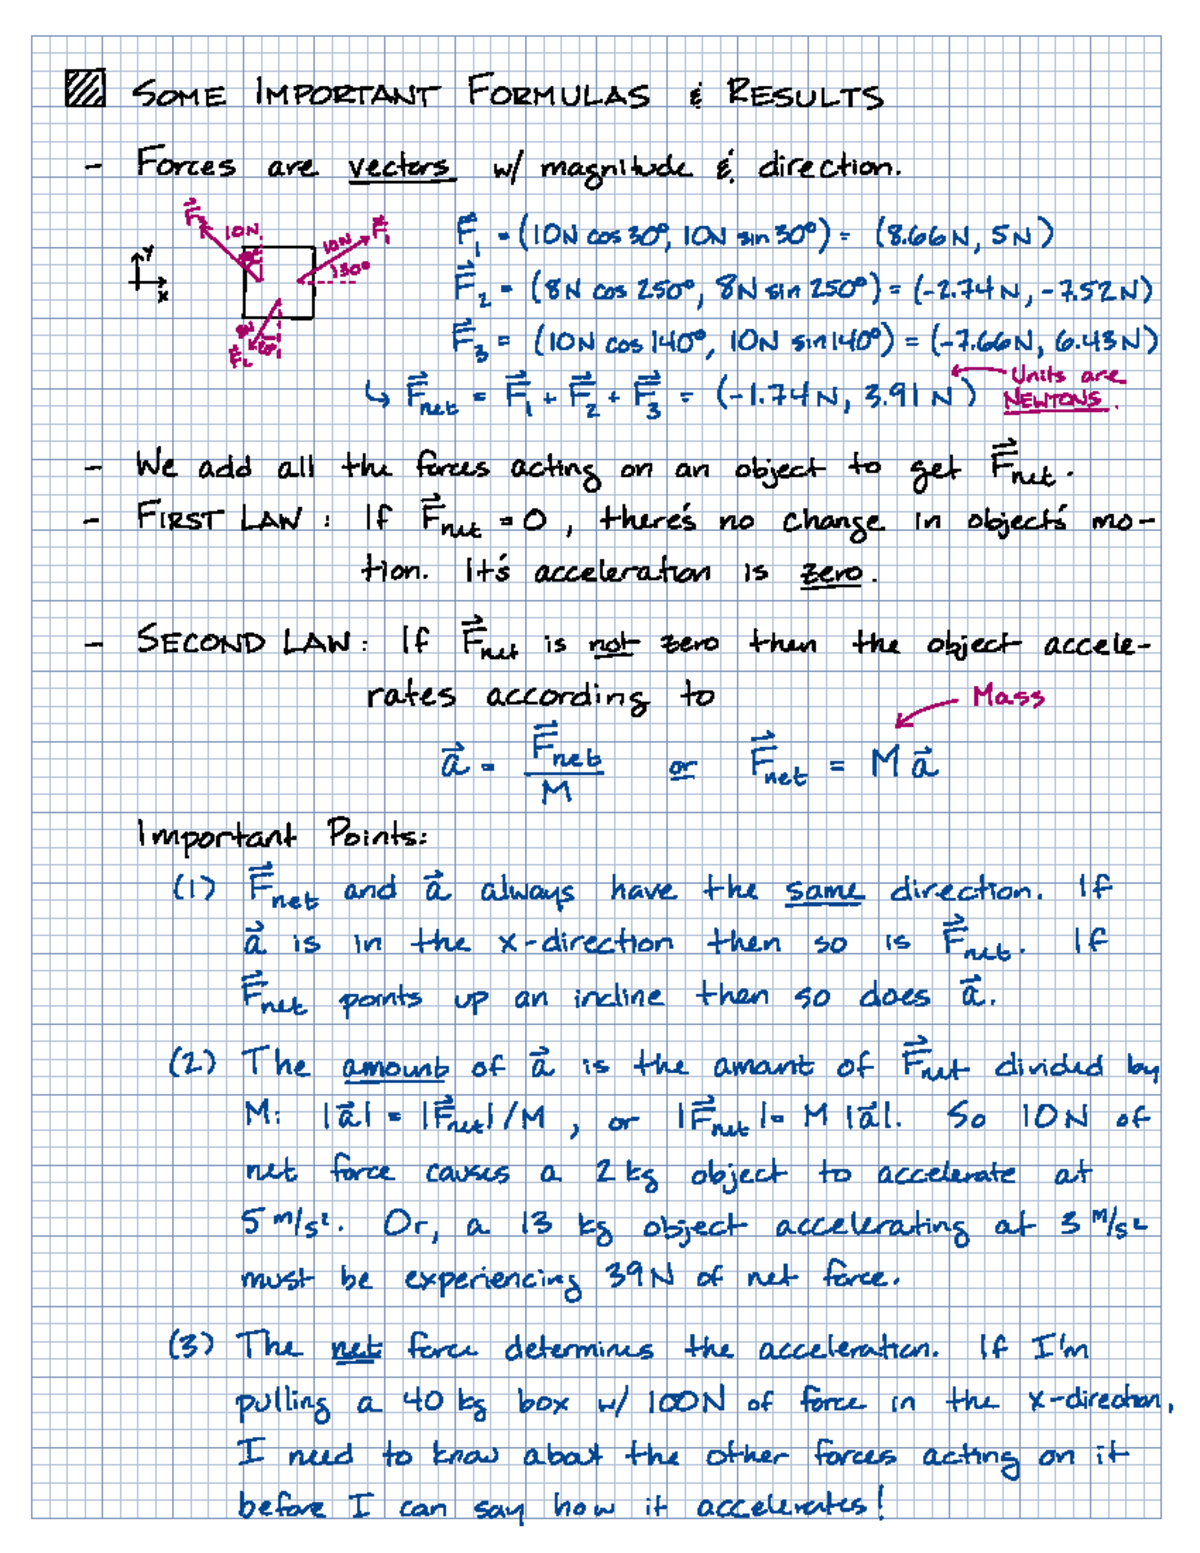 SOME IMPORTANT FORMULAS & RESULTS
- Forces are vectors w/ magnitude & direction.
F⃗₁ = (10N cos 30°, 10N sin 30°) = (8.66N, 5N)
F⃗₂ = (8N cos 250°, 8N sin 250°) = (-2.74N, -7.52N)
F⃗₃ = (10N cos 140°, 10N sin 140°) = (-7.66N, 6.43N)
↳ F⃗net = F⃗₁ + F⃗₂ + F⃗₃ = (-1.74N, 3.91N)
Units are
NEWTONS.
10N
10N
F⃗₁
30°
y
x
8N
- We add all the forces acting on an object to get F⃗net.
- FIRST LAW: If F⃗net = 0, there's no change in object's mo-
tion. It's acceleration is zero.
- SECOND LAW: If F⃗net is not zero then the object accele-
rates according to
Mass
a⃗ = F⃗net / M or F⃗net = M a⃗
Important Points:
(1) F⃗net and a⃗ always have the same direction. If
a⃗ is in the x-direction then so is F⃗net. If
F⃗net points up an incline then so does a⃗.
(2) The amount of a⃗ is the amount of F⃗net divided by
M: |a⃗| = |F⃗net|/M, or |F⃗net| = M |a⃗|. So 10N of
net force causes a 2 kg object to accelerate at
5 m/s². Or, a 13 kg object accelerating at 3 m/s²
must be experiencing 39N of net force.
(3) The net force determines the acceleration. If I'm
pulling a 40 kg box w/ 100N of force in the x-direction,
I need to know about the other forces acting on it
before I can say how it accelerates!